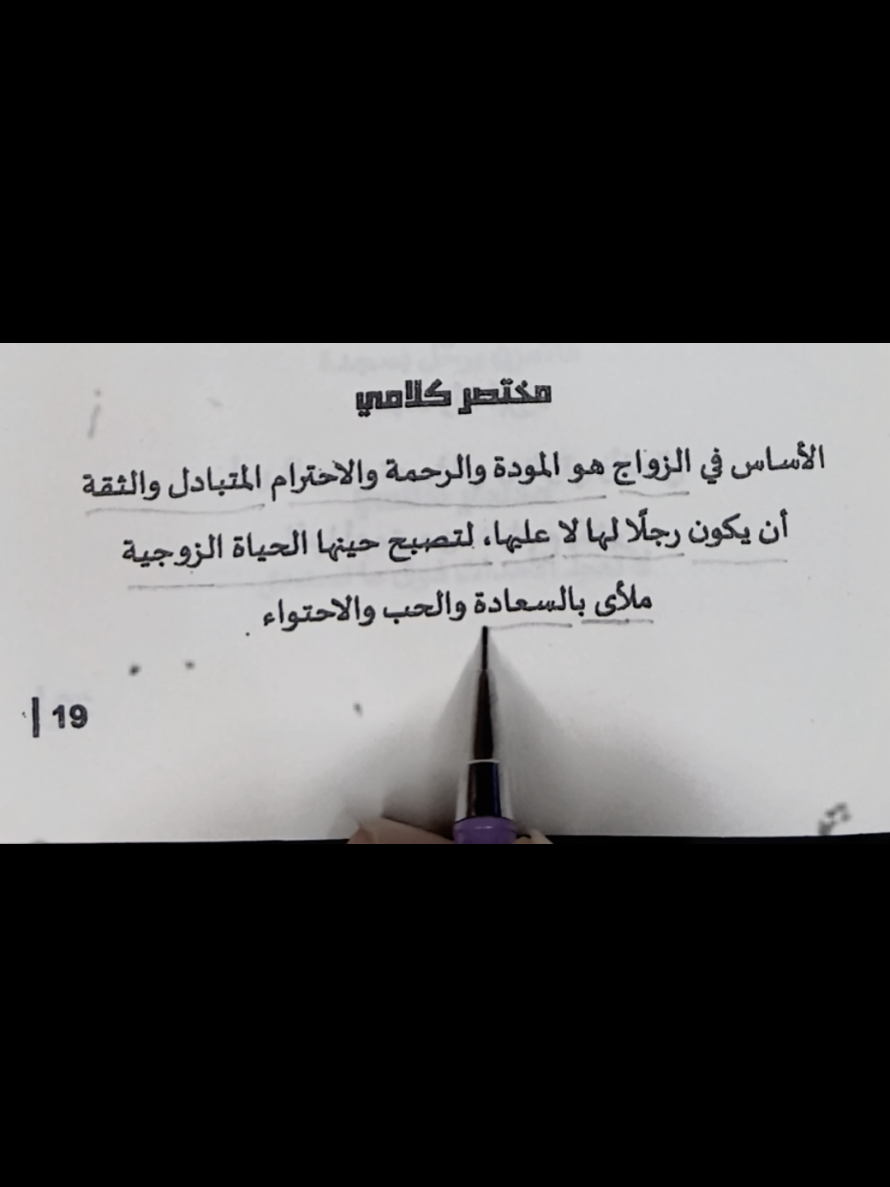 مختصر كلامي
الأساس في الزواج هو المودة والرحمة والاحترام المتبادل والثقة
أن يكون رجلًا لها لا عليها، لتصبح حينها الحياة الزوجية
ملأى بالسعادة والحب والاحتواء
19 |